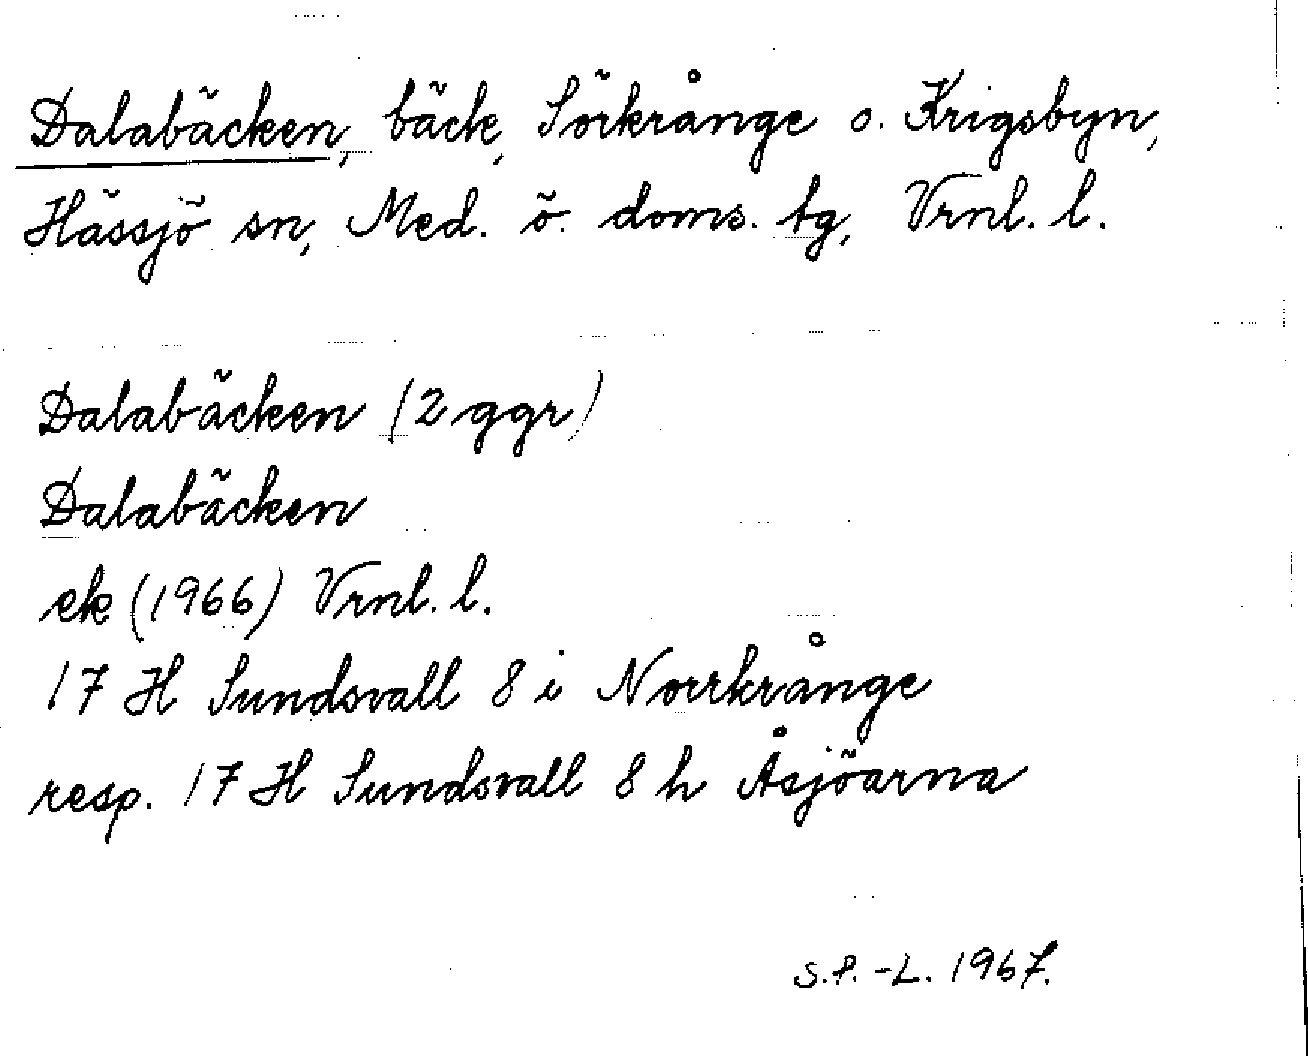 Dalabäcken, bäck, Sörkrånge o. Krigsbyn,
Hässjö sn, Med. ö. doms. tg, Vrnl. l.
Dalabäcken (2 ggr)
Dalabäcken
ek (1966) Vrnl. l.
17 H Sundsvall 8 i Norrkrånge
resp. 17 H Sundsvall 8 h Åsjöarna
S.P.-L. 1967.